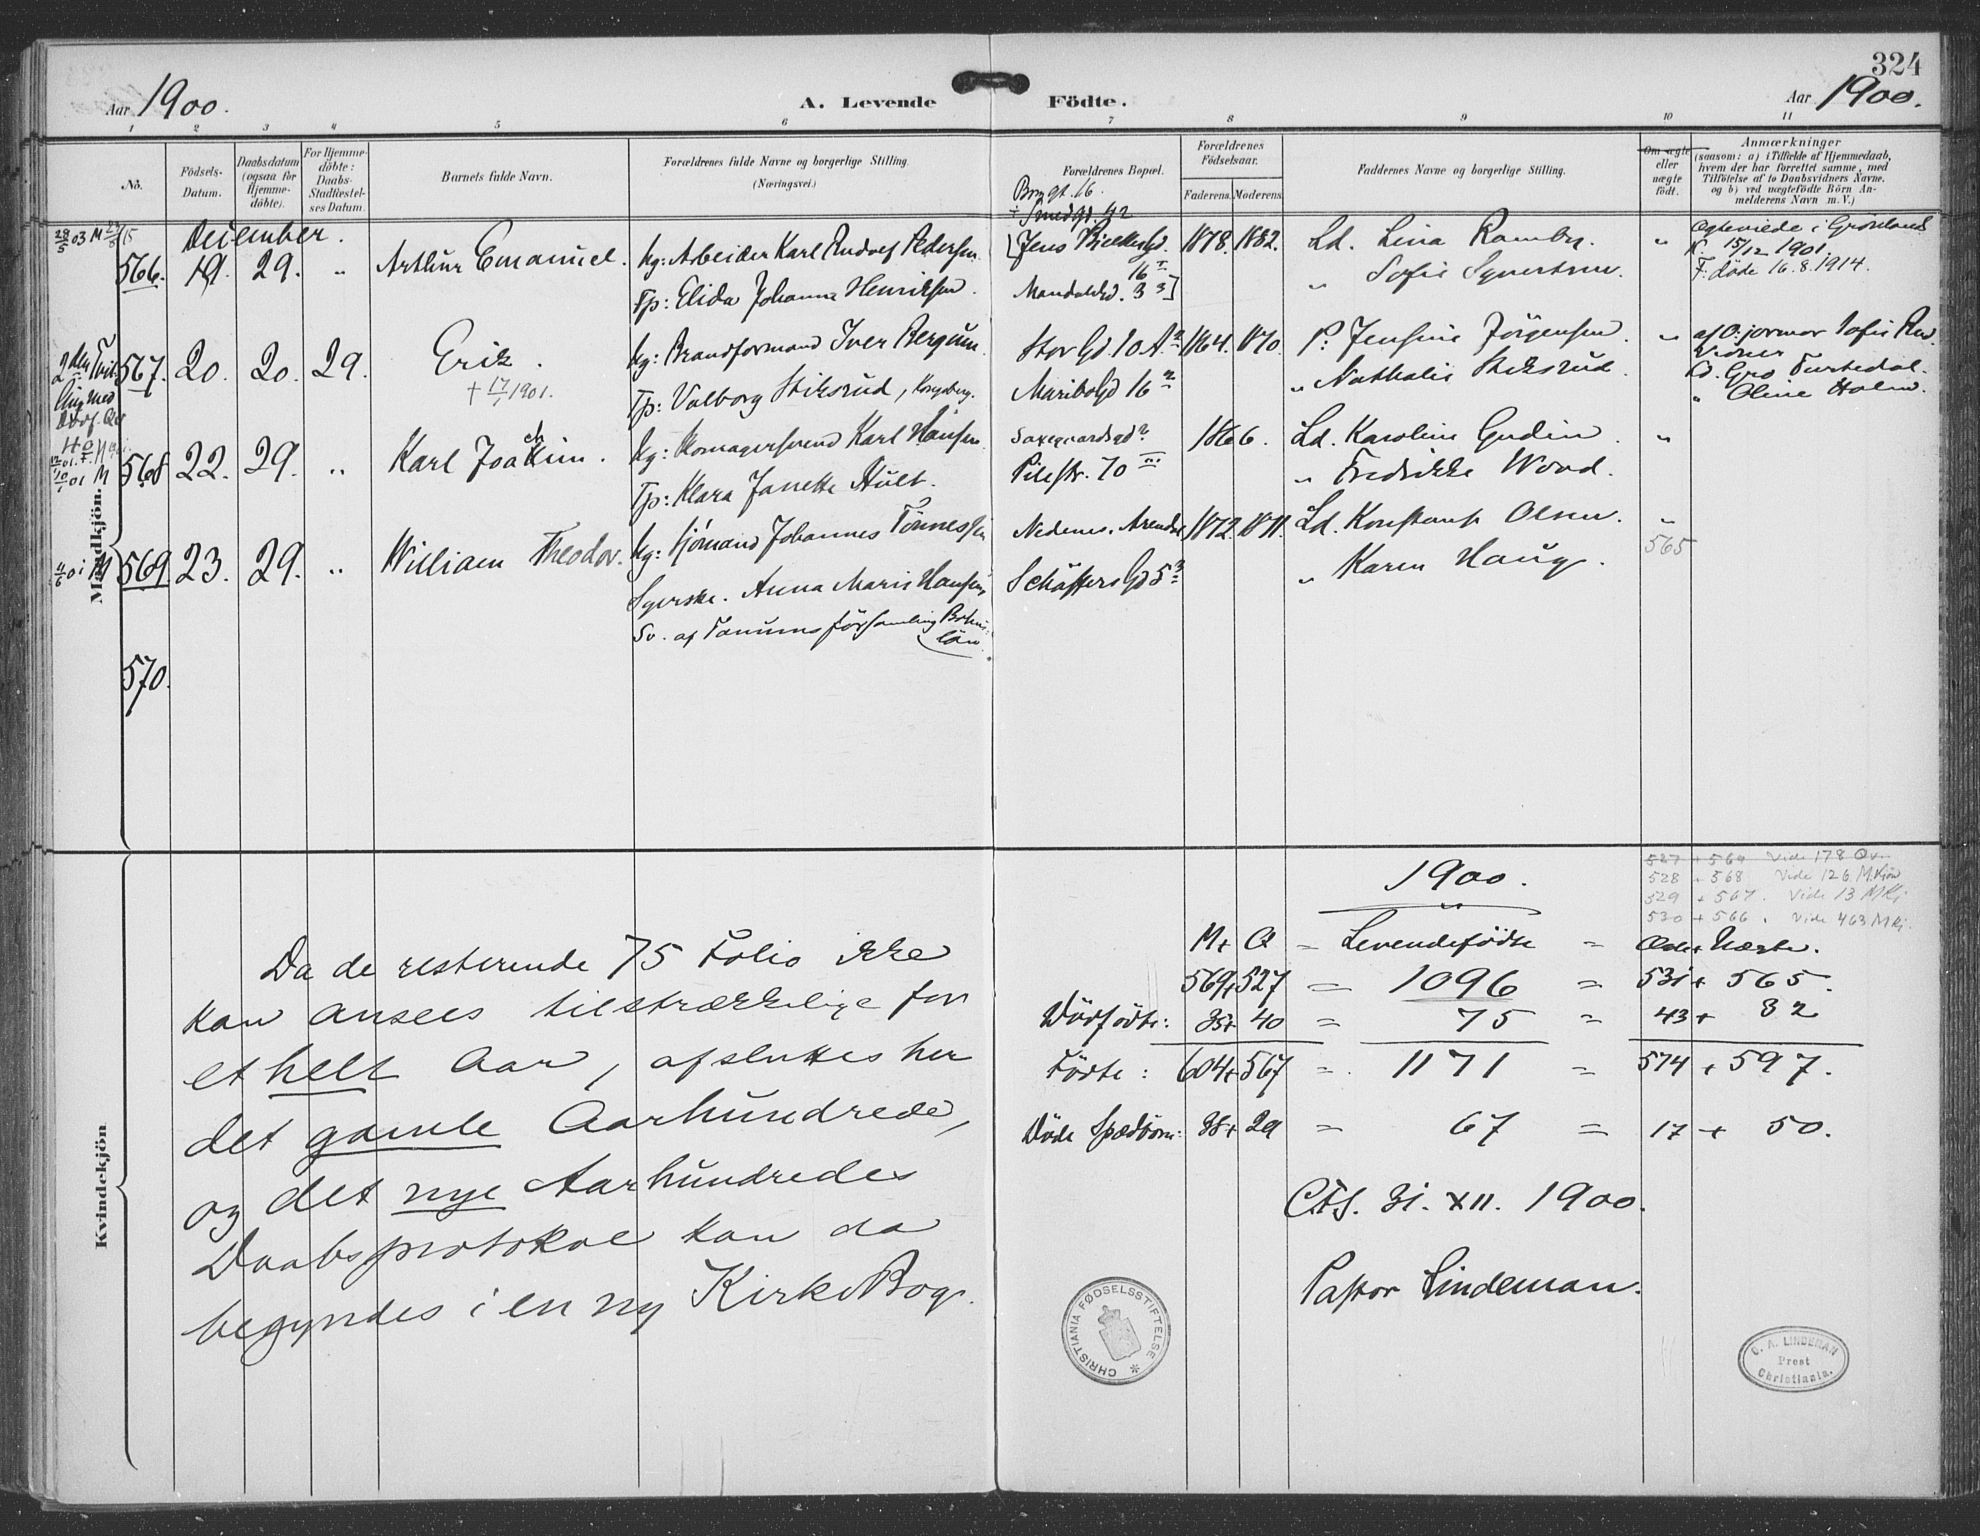 324
Aar 1900.
A. Levende Födte.
Aar 1900.
1 2 3 4 5 6 7 8 9 10 11
No.
Födsels-
Datum.
Daabsdatum
(ogsaa for
Hjemme-
döbte).
For Hjemme-
döbte:
Daabs-
Stadfæstel-
ses Datum.
Barnets fulde Navn.
Forældrenes fulde Navne og borgerlige Stilling.
(Næringsvei.)
Forældrenes Bopæl.
Forældrenes
Födselsaar.
Faderens. Moderens.
Faddernes Navne og borgerlige Stilling.
Om ægte
eller
uægte
födt.
Anmærkninger
(saasom: a) i Tilfælde af Hjemmedaab,
hvem der har forrettet samme, med
Tilföielse af to Daabsvidners Navne.
og b) ved uægtefödte Börn An-
melderens Navn m. V.)
Mandkjön.
December.
566. 19. 29. " Arthur Emanuel.
Ug: Arbeider Karl Rudolf Pedersen
Tp: Elida Johanne Henriksen.
Borggt. 16.
Smedgd. 42
Jens Bjelkes Gd.
16
Mandalsgd. 3
1878. 1882.
Ld. Lina Ramby.
" Sofie Syvertsen.
"
Ægteviede i Grönland
K. 15/12 1901.
F. döde 16.8.1914.
567. 20. 20. 29. Erik.
+ 17/1 1901.
Ug: Brandformand Iver Bergum
Tp: Valborg Stiksrud, Kongsberg.
Stor Gd 10 A
Maribo Gd 16
1864. 1870.
P. Jensine Jörgensen
" Nathalie Stiksrud.
"
af O: jormor Sofie
Vidner
Ld. Gro
" Oline Holm.
568 22. 29. " Karl Joachim.
Ug: Skomagersvend Karl Hansen
Tp: Klara Janette Hult.
Pilestr. 70
1866.
Ld. Karoline Gudim.
" Fredrikke Wood.
"
569 23. 29. " William Theodor.
Ug: Sjömand Johannes Tönnessen
Syerske. Anna Marie Hansen,
Sv. af Tanums församling Bohus
län.
Nedenes. Arendal
Schäffers Gd 5
1872. 1871.
Ld. Konstanse Olsen.
" Karen Haug.
"
565
570.
Kvindekjön
527 + 569 Vide 178 Qv.
528 + 568 Vide 126 M.Kjön
529 + 567. Vide 13 M Kj
530 + 566. Vide 463 M Kj.
Da de resterende 75 Folio ikke
kan ansees tilstrækkelige for
et helt Aar, afsluttes her
det gamle Aarhundrede,
og det nye Aarhundredes
Daabsprotokol kan da
begyndes i en ny KirkeBog.
1900.
M + Q = Levendefödte = Ægte + Uægte.
569 + 527 = 1096 = 531 + 565.
Dödfödte: 35 + 40 = 75 = 43 + 32
Födte: 604 + 567 = 1171 = 574 + 597.
Döde Spædbörn: 38 + 29 = 67 = 17 + 50.
Cfs. 31. XII. 1900.
Pastor Lindeman.
CHRISTIANIA FØDSELSSTIFTELSE
C. A. LINDEMAN
Prest
Christiania.